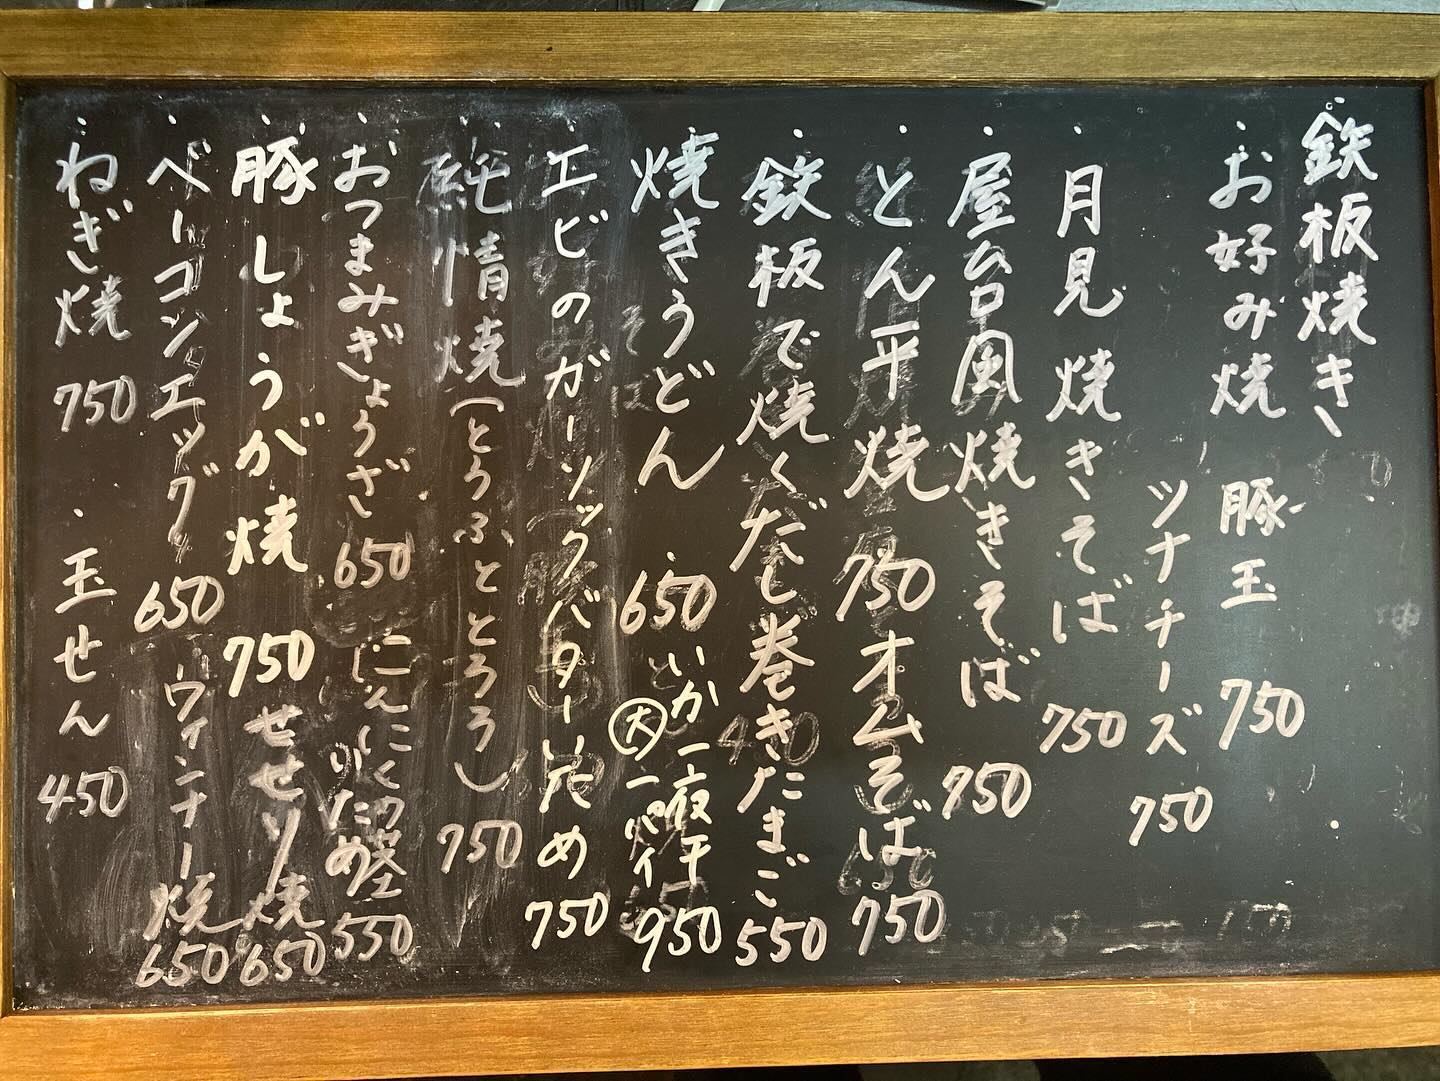 鉄板焼き
・お好み焼 豚玉 750
ツナチーズ 750
・月見焼きそば 750
・屋台風焼きそば 750
・とん平焼 750 オムそば 750
・鉄板で焼くだし巻きたまご 550
・焼きうどん 650 ・いか一夜干
大一パイ 950
・エビのガーリックバターいため 750
・純情焼(とうふととろろ) 750
・おつまみぎょうざ 650 にんにくの芽
いため 550
・豚しょうが焼 750 せせり焼 650
・ベーコンエッグ 650 ウィンナー焼 650
・ねぎ焼 750 ・玉せん 450